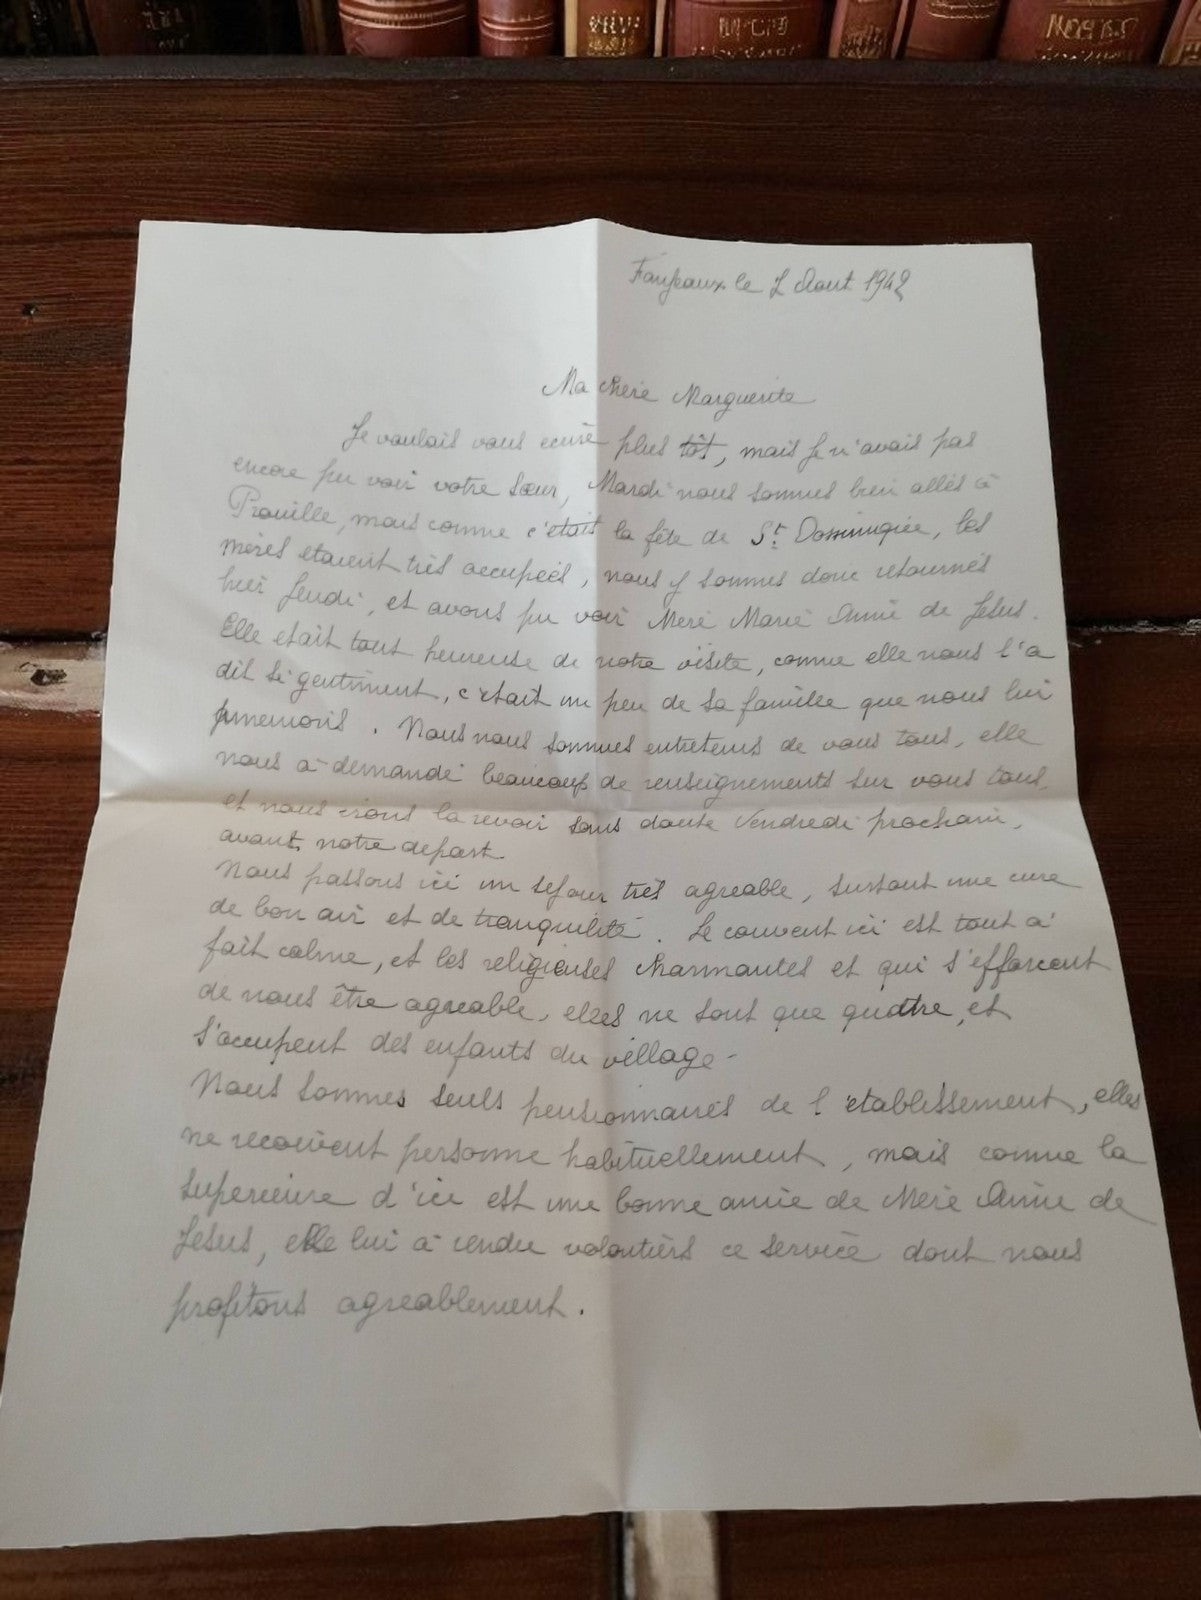 Fanjeaux le 7 Aout 1942
Ma chère Marguerite
Je voulais vous ecrire plus tôt, mais je n'avais pas
encore pu voir votre sœur, Mardi nous sommes bien allés à
Prouille, mais comme c'était la fête de St Dominique, les
mères etaient très occupeés, nous y sommes donc retournés
hier Jeudi, et avons pu voir Mère Marie Anne de Jesus.
Elle etait tout heureuse de notre visite, comme elle nous l'a
dit si gentiment, c'etait un peu de sa famille que nous lui
amenions. Nous nous sommes entretenus de vous tous, elle
nous à demandé beaucoup de renseignements sur vous tous,
et nous irons la revoir sans doute Vendredi prochain,
avant notre depart.
Nous passons ici un sejour très agreable, surtout une cure
de bon air et de tranquilité. Le couvent ici est tout à
fait calme, et les religieuses charmantes et qui s'efforcent
de nous être agreable, elles ne sont que quatre, et
s'occupent des enfants du village-
Nous sommes seuls pensionnaires de l'etablissement, elles
ne recoivent personne habituellement, mais comme la
superieure d'ici est une bonne amie de Mère Anne de
Jesus, elle lui à rendu volontiers ce service dont nous
profitons agreablement.